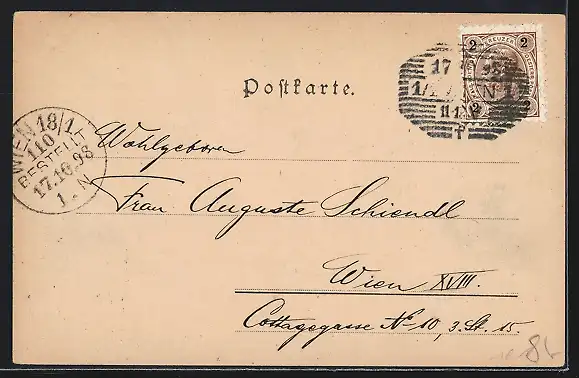 2 KREUZER 2
17
98
11
f
2 2
Postkarte.
WIEN 18/1
110
BESTELLT
17.10.98
1.N
Wohlgeboren
Frau Auguste Schiendl
Wien XVIII.
Cottagegasse No 10, 3. St. 15.